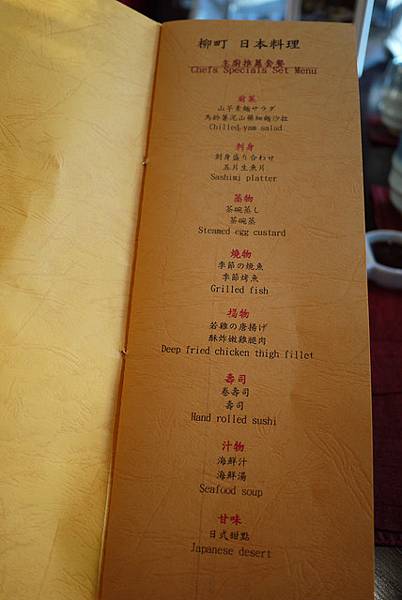 柳町 日本料理
主廚推薦套餐
Chefs Specials Set Menu
前菜
山芋素麵サラダ
馬鈴薯泥山藥細麵沙拉
Chilled yam salad
刺身
刺身盛り合わせ
五片生魚片
Sashimi platter
蒸物
茶碗蒸し
茶碗蒸
Steamed egg custard
燒物
季節の焼魚
季節烤魚
Grilled fish
揚物
若雞の唐揚げ
酥炸嫩雞腿肉
Deep fried chicken thigh fillet
壽司
卷壽司
壽司
Hand rolled sushi
汁物
海鮮汁
海鮮湯
Seafood soup
甘味
日式甜點
Japanese desert